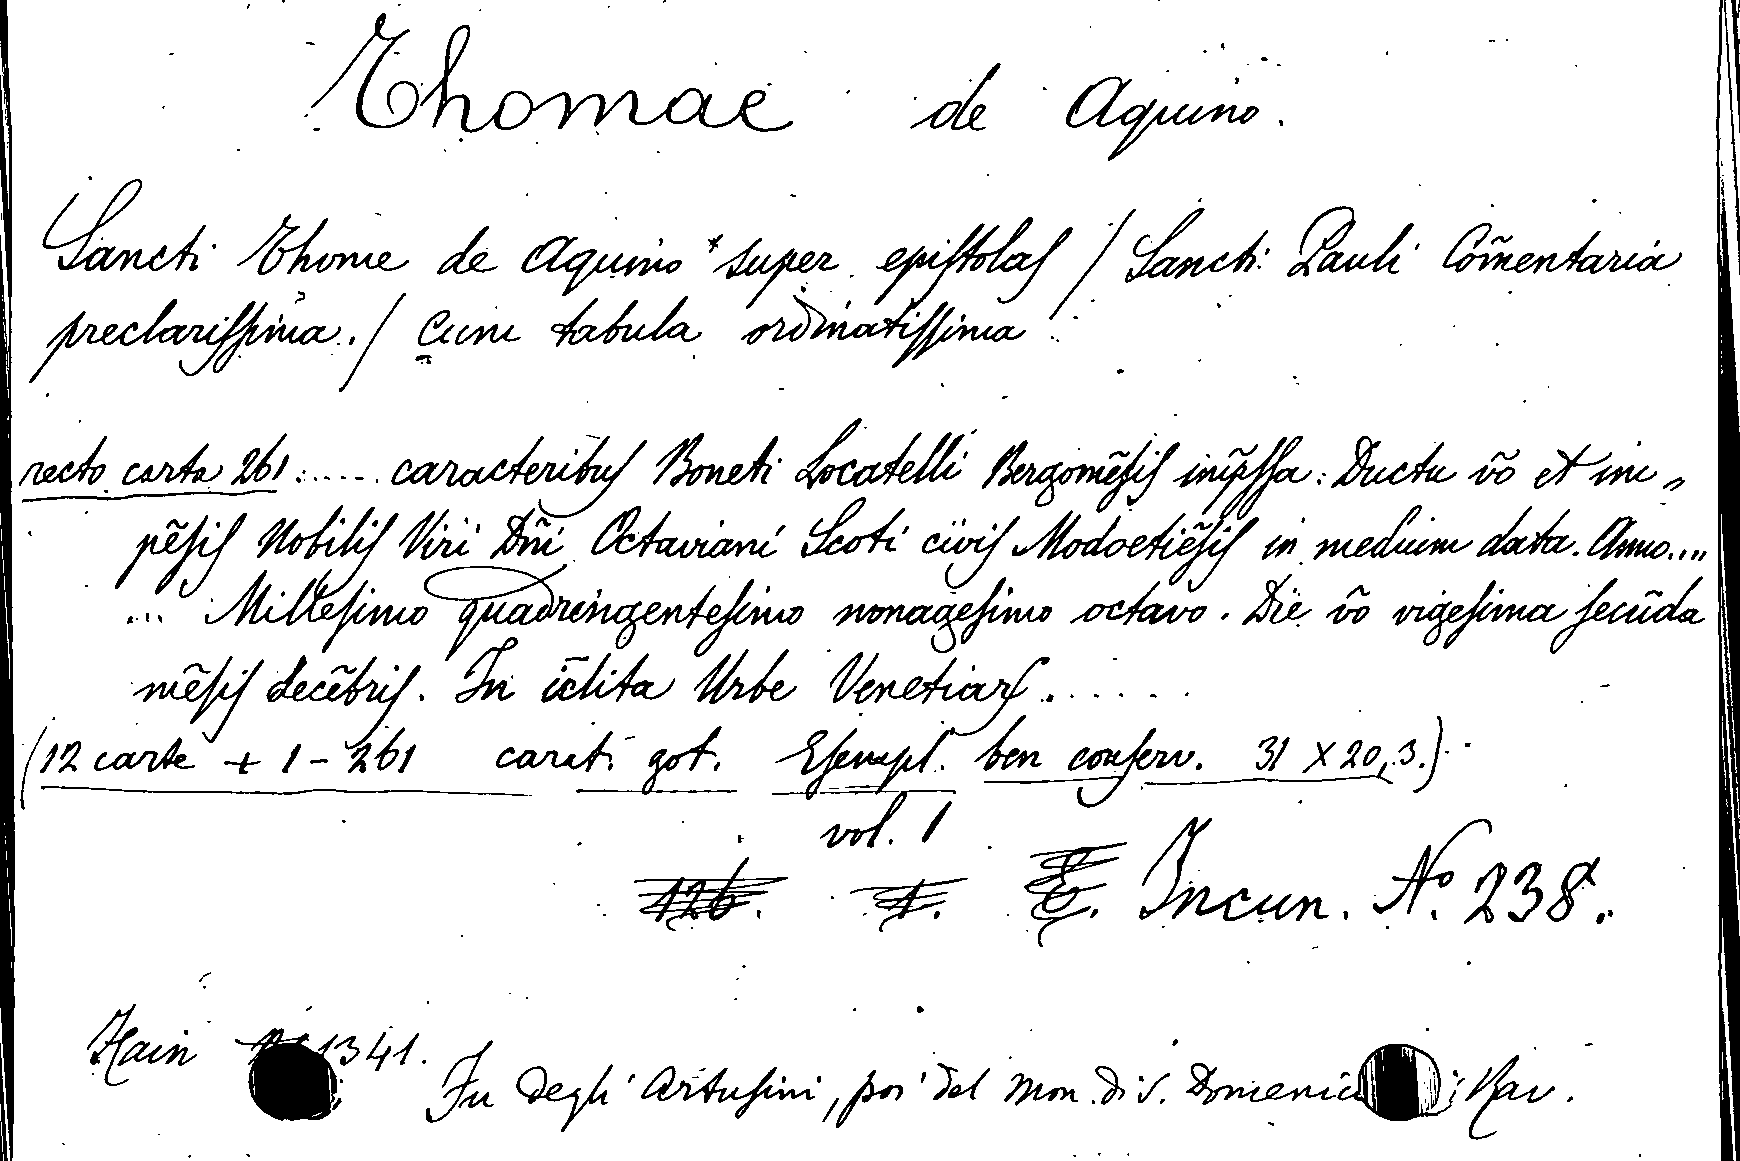 Thomae de Aquino.
Sancti Thome de Aquino * super epiſtolaſ / Sancti Pauli Com̃entaria
preclariſſima. / Cum tabula ordinatiſſima
recto carta 261 ..... caracteribuſ Boneti Locatelli Bergomẽſiſ imp̃ſſa: Ductu ṽo et im„
pẽſiſ Nobiliſ Viri Dñi Octaviani Scoti civiſ Modoetiẽſiſ in medium data. Anno....
... Milleſimo quadringenteſimo nonageſimo octavo. Die ṽo vigeſima ſecũda
mẽſiſ decẽbriſ. In ĩclita Urbe Venetiarſ. .....
(12 carte + 1 - 261 carat. got. Eſempl. ben conſerv. 31 X 20,3.)
vol. 1
126. 1. Incun. No. 238.
Hain 1341.
Fu degli Artuſini, poi del Mon. di S. Domenico Rav.